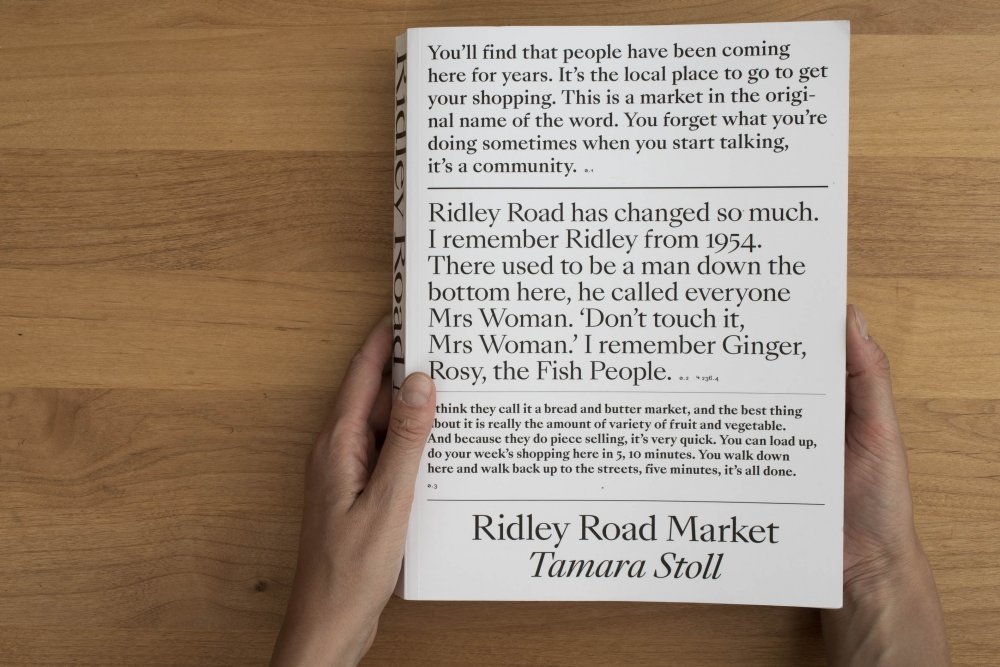 Ridley Road
You'll find that people have been coming
here for years. It's the local place to go to get
your shopping. This is a market in the origi-
nal name of the word. You forget what you're
doing sometimes when you start talking,
it's a community. 0.1
Ridley Road has changed so much.
I remember Ridley from 1954.
There used to be a man down the
bottom here, he called everyone
Mrs Woman. ‘Don't touch it,
Mrs Woman.’ I remember Ginger,
Rosy, the Fish People. 0.2 ↳ 236.4
think they call it a bread and butter market, and the best thing
bout it is really the amount of variety of fruit and vegetable.
And because they do piece selling, it's very quick. You can load up,
do your week's shopping here in 5, 10 minutes. You walk down
here and walk back up to the streets, five minutes, it's all done.
0.3
Ridley Road Market
Tamara Stoll